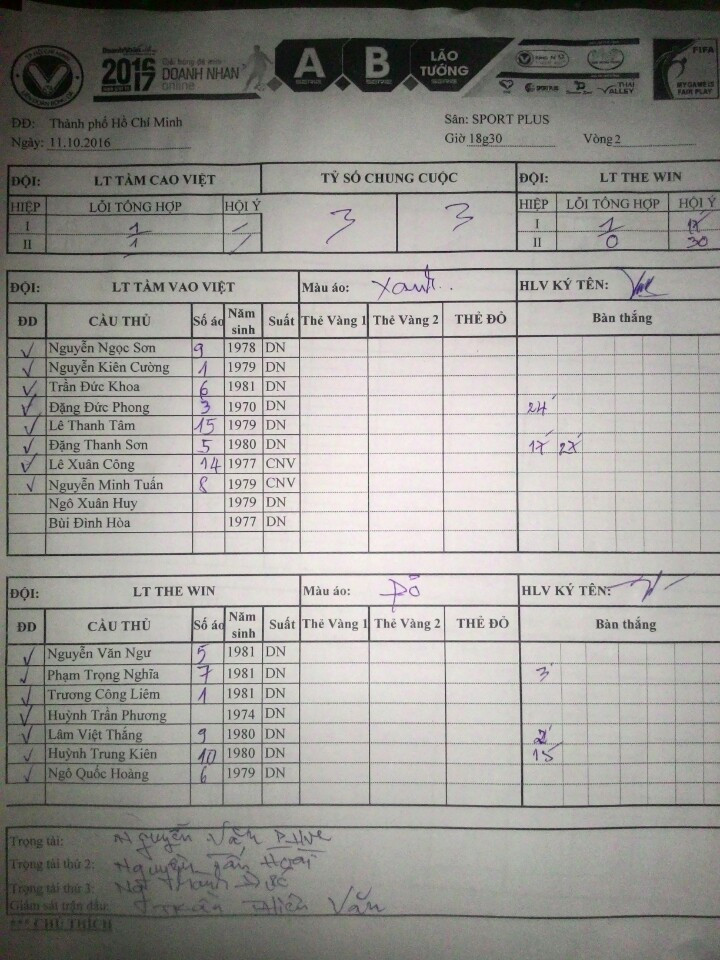 2016
2017
DOANH NHÂN
online
A
B
LÃO
TƯỚNG
THAI
VALLEY
FIFA
MY GAME IS
FAIR PLAY
ĐĐ: Thành phố Hồ Chí Minh Sân: SPORT PLUS
Ngày: 11.10.2016 Giờ 18g30 Vòng 2
ĐỘI: LT TẦM CAO VIỆT TỶ SỐ CHUNG CUỘC ĐỘI: LT THE WIN
HIỆP LỖI TỔNG HỢP HỘI Ý 3 3 HIỆP LỖI TỔNG HỢP HỘI Ý
I 1 / I 1
II 1 / II 0 30
ĐỘI: LT TẦM VAO VIỆT Màu áo: Xanh HLV KÝ TÊN:
ĐD CẦU THỦ Số áo Năm sinh Suất Thẻ Vàng 1 Thẻ Vàng 2 THẺ ĐỎ Bàn thắng
✓ Nguyễn Ngọc Sơn 9 1978 DN
✓ Nguyễn Kiên Cường 1 1979 DN
✓ Trần Đức Khoa 6 1981 DN
✓ Đặng Đức Phong 3 1970 DN 24'
✓ Lê Thanh Tâm 15 1979 DN
✓ Đặng Thanh Sơn 5 1980 DN 17' 27'
✓ Lê Xuân Công 14 1977 CNV
✓ Nguyễn Minh Tuấn 8 1979 CNV
Ngô Xuân Huy 1979 DN
Bùi Đình Hòa 1977 DN
ĐỘI: LT THE WIN Màu áo: Đỏ HLV KÝ TÊN:
ĐD CẦU THỦ Số áo Năm sinh Suất Thẻ Vàng 1 Thẻ Vàng 2 THẺ ĐỎ Bàn thắng
✓ Nguyễn Văn Ngư 5 1981 DN
✓ Phạm Trọng Nghĩa 7 1981 DN 3'
✓ Trương Công Liêm 1 1981 DN
✓ Huỳnh Trần Phương 1974 DN
✓ Lâm Việt Thắng 9 1980 DN
✓ Huỳnh Trung Kiên 10 1980 DN 15'
✓ Ngô Quốc Hoàng 6 1979 DN
Trọng tài: Nguyễn Văn
Trọng tài thứ 2: Nguyễn Tấn Hoài
Trọng tài thứ 3:
Giám sát trận đấu: Trần Thiên Văn
*** CHÚ THÍCH